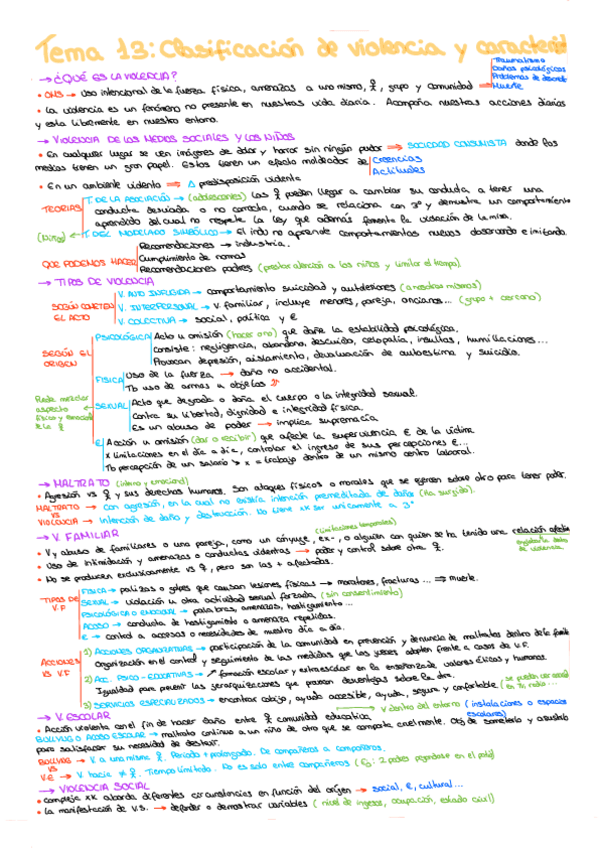 Tema 13: Clasificación de violencia y caracterís
Traumatismo
Daños psicológicos
Problemas de desarrollo
Muerte
→ ¿QUÉ ES LA VIOLENCIA?
• OMS → Uso intencional de la fuerza física, amenazas a uno mismo, grupo y comunidad
• La violencia es un fenómeno no presente en nuestras vida diaria. Acompaña nuestras acciones diarias
y esta libremente en nuestro entorno.
→ VIOLENCIA DE LOS MEDIOS SOCIALES Y LOS NIÑOS
• En cualquier lugar se ven imágenes de dolor y horror sin ningún pudor ⇒ SOCIEDAD CONSUMISTA donde los
medios tienen un gran papel. Estos tienen un efecto moldeador de
Creencias
Actitudes
• En un ambiente violento ⇒ Δ predisposición violenta
TEORIAS
T. DE LA ASOCIACIÓN → (adolescentes) Las pueden llegar a cambiar su conducta, a tener una
conducta desviada o no correcta, cuando se relaciona con 3º y demuestra un comportamiento
aprendido del cual no respeta la ley que además fomenta la violación de la misma.
(Niños) T. DEL MODELADO SIMBÓLICO → El indo no aprende comportamientos nuevos observando e imitando.
QUE PODEMOS HACER
Recomendaciones → industria.
Cumplimiento de normas
Recomendaciones padres (prestar atención a los niños y limitar el tiempo).
→ TIPOS DE VIOLENCIA
SEGÚN COMETEN
EL ACTO
V. AUTO INFLIGIDA → comportamiento suicidad y autolesiones (a nosotros mismos)
V. INTERPERSONAL → V. familiar, incluye menores, pareja, ancianos... (grupo + cercano)
V. COLECTIVA → social, política y €
SEGÚN EL
ORIGEN
PSICOLÓGICA
Acto u omisión (hacer o no) que daña la estabilidad psicológica.
consiste: negligencia, abandono, descuido, celopatía, insultos, humillaciones...
Provocan depresión, aislamiento, devaluación de autoestima y suicidio.
FISICA
Uso de la fuerza → daño no accidental.
Tb uso de armas u objetos
Puede mezclar
aspecto
físico y emocional
de la
SEXUAL
Acto que degrada o daña el cuerpo o la integridad sexual.
Contra su libertad, dignidad e integridad física.
Es un abuso de poder → implica supremacia
€
Acción u omisión (dar o recibir) que afecte la supervivencia € de la víctima
x limitaciones en el día a día, controlar el ingreso de sus percepciones €...
Tb percepción de un salario > x = trabajo dentro de un mismo centro laboral.
→ MALTRATO (interno y emocional)
• Agresión vs y sus derechos humanos. Son ataques físicos o morales que se ejercen sobre otro para tener poder.
MALTRATO → con agresión, en la cual no existía intención premeditada de dañar (Ha surgido).
vs
VIOLENCIA → Intención de daño y destrucción. No tiene xx ser unicamente a 3º
→ V. FAMILIAR
(limitaciones temporales)
• V y abuso de familiares o una pareja, como un cónyuge, ex-, o alguien con quien se ha tenido una relación afectiva
• Uso de intimidación y amenazas o conductas violentas → poder y control sobre otra
• No se producen exclusivamente vs, pero son las + afectadas.
TIPOS DE
V.F
FISICA → palizas o golpes que causan lesiones físicas → moratones, fracturas ... ⇒ muerte.
SEXUAL → violación u otra actividad sexual forzada. (sin consentimiento)
PSICOLÓGICA O EMOCIONAL → palabras, amenazas, hostigamiento ...
ACOSO → conducta de hostigamiento o amenaza repetidas.
€ → control a accesos o necesidades de nuestro día a día.
ACCIONES
VS V.F
1) ACCIONES ORGANIZATIVAS → participación de la comunidad en prevención y denuncia de maltratos dentro de la familia
Organización en el control y seguimiento de las medidas que los jueces adopten frente a casos de V.F.
2) ACC. PSICO-EDUCATIVAS → formación escolar y extraescolar en la enseñanza de valores éticos y humanos.
Igualdad para prevenir las jerarquizaciones que provean desventajas sobre la otra.
3) SERVICIOS ESPECIALIZADOS → encontrar cobijo, ayuda accesible, ayuda, segura y confortable
→ V. ESCOLAR
V dentro del entorno (instalaciones o espacios
escolares)
• Acción violenta con el fin de hacer daño entre comunidad educativa
BULLYING O ACOSO ESCOLAR → maltrato continuo a un niño de otro que se comporta cruelmente. Obj de someterlo y asustarlo
para satisfacer su necesidad de destruir.
BULLYING → V a una misma. Periodo + prolongado. De compañeros a compañeros.
vs
V.E → V hacia ≠. Tiempo limitado. No es solo entre compañeros (Ej: 2 padres pegandose en el patio)
→ VIOLENCIA SOCIAL
• compleja xk aborda diferentes circunstancias en función del origen → social, €, cultural...
• La manifestación de V.S. → defender o demostrar variables (nivel de ingresos, ocupación, estado civil)